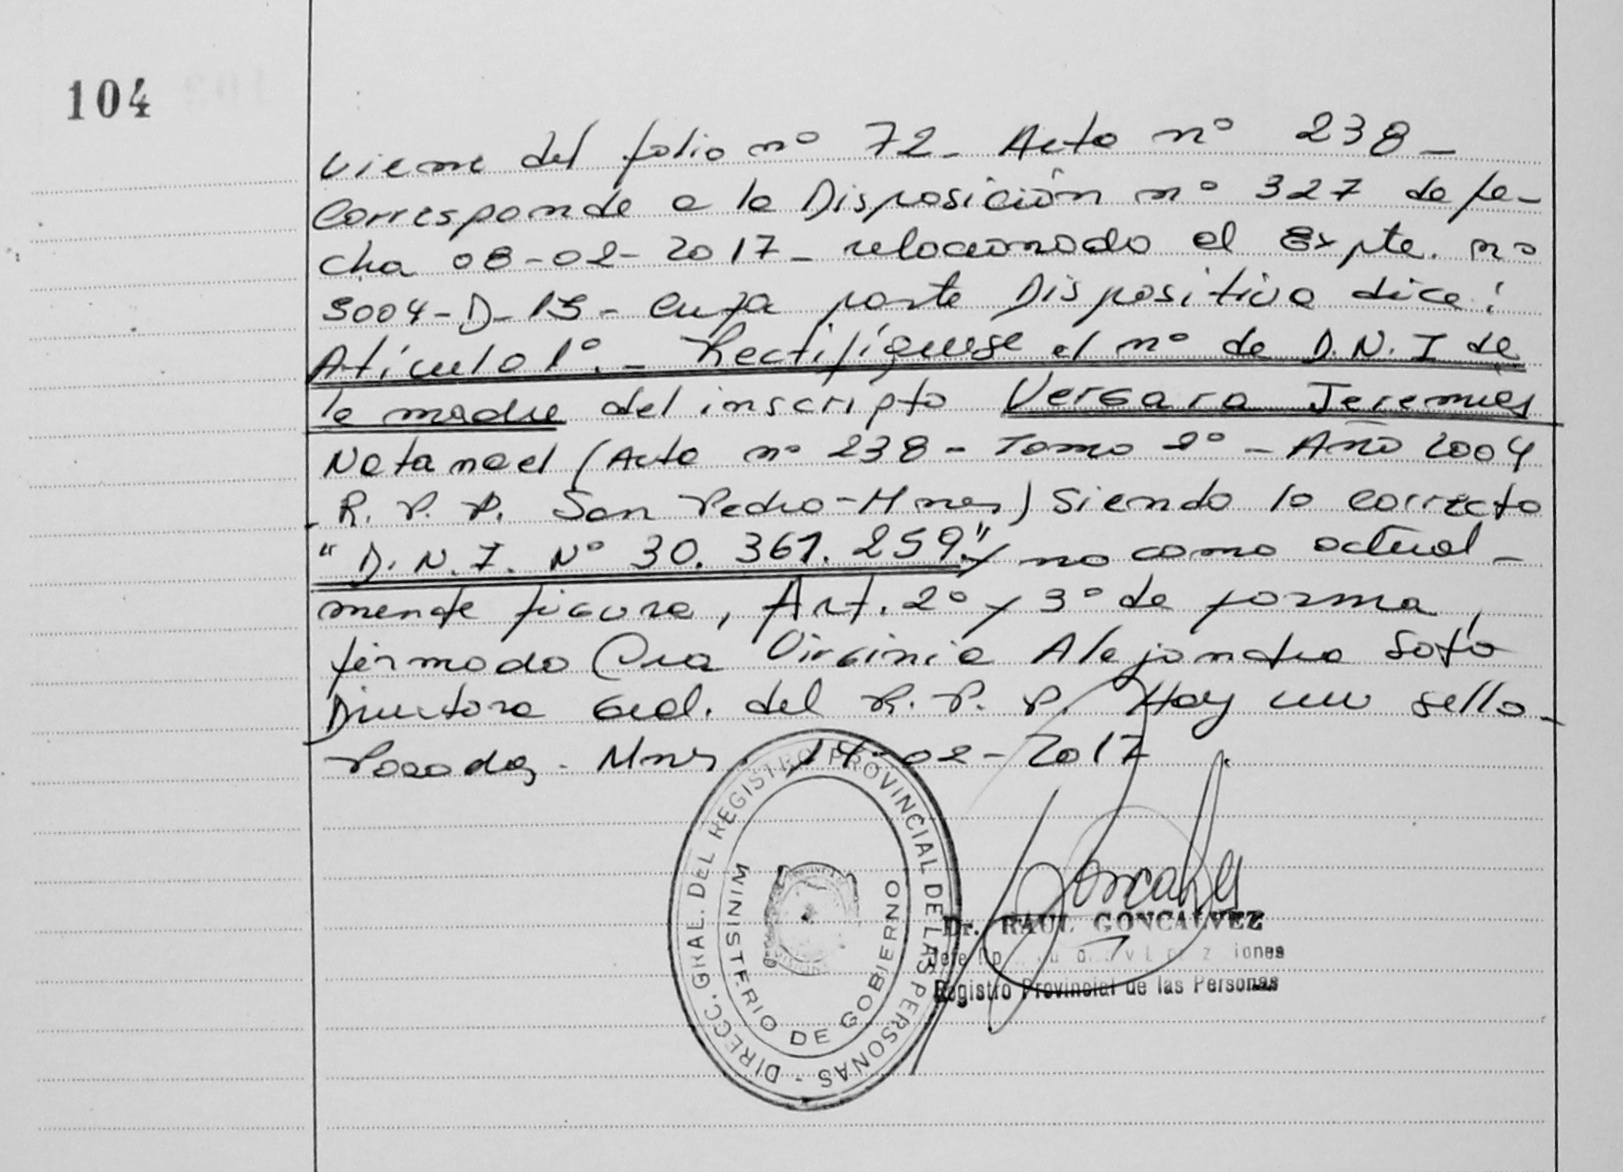 104
Viene del folio nº 72 - Acta nº 238 -
Corresponde a la Disposición nº 327 de fe-
cha 08-02-2017 - relacionado al Expte. nº
3004-D-15 - cuya parte Dispositiva dice:
Atículo 1º. - Rectifíquese el nº de D.N.I de
la madre del inscripto Vergara Jeremías
Natanael (Acta nº 238 - Tomo 2º - Año 2004
R. P. P. San Pedro - Mnes) Siendo lo correcto
"D.N.I. Nº 30.361.259" y no como actual-
mente figura, Art. 2º y 3º de forma,
firmado Cra Virginia Alejandra Soto
Directora Gral. del R. P. P. Hay un sello -
Posadas - Mnes, 14-02-2017.
DIRECC. GRAL. DEL REGISTRO PROVINCIAL DE LAS PERSONAS -
MINISTERIO DE GOBIERNO
Dr. RAUL GONCALVEZ
Jefe
Registro Provincial de las Personas